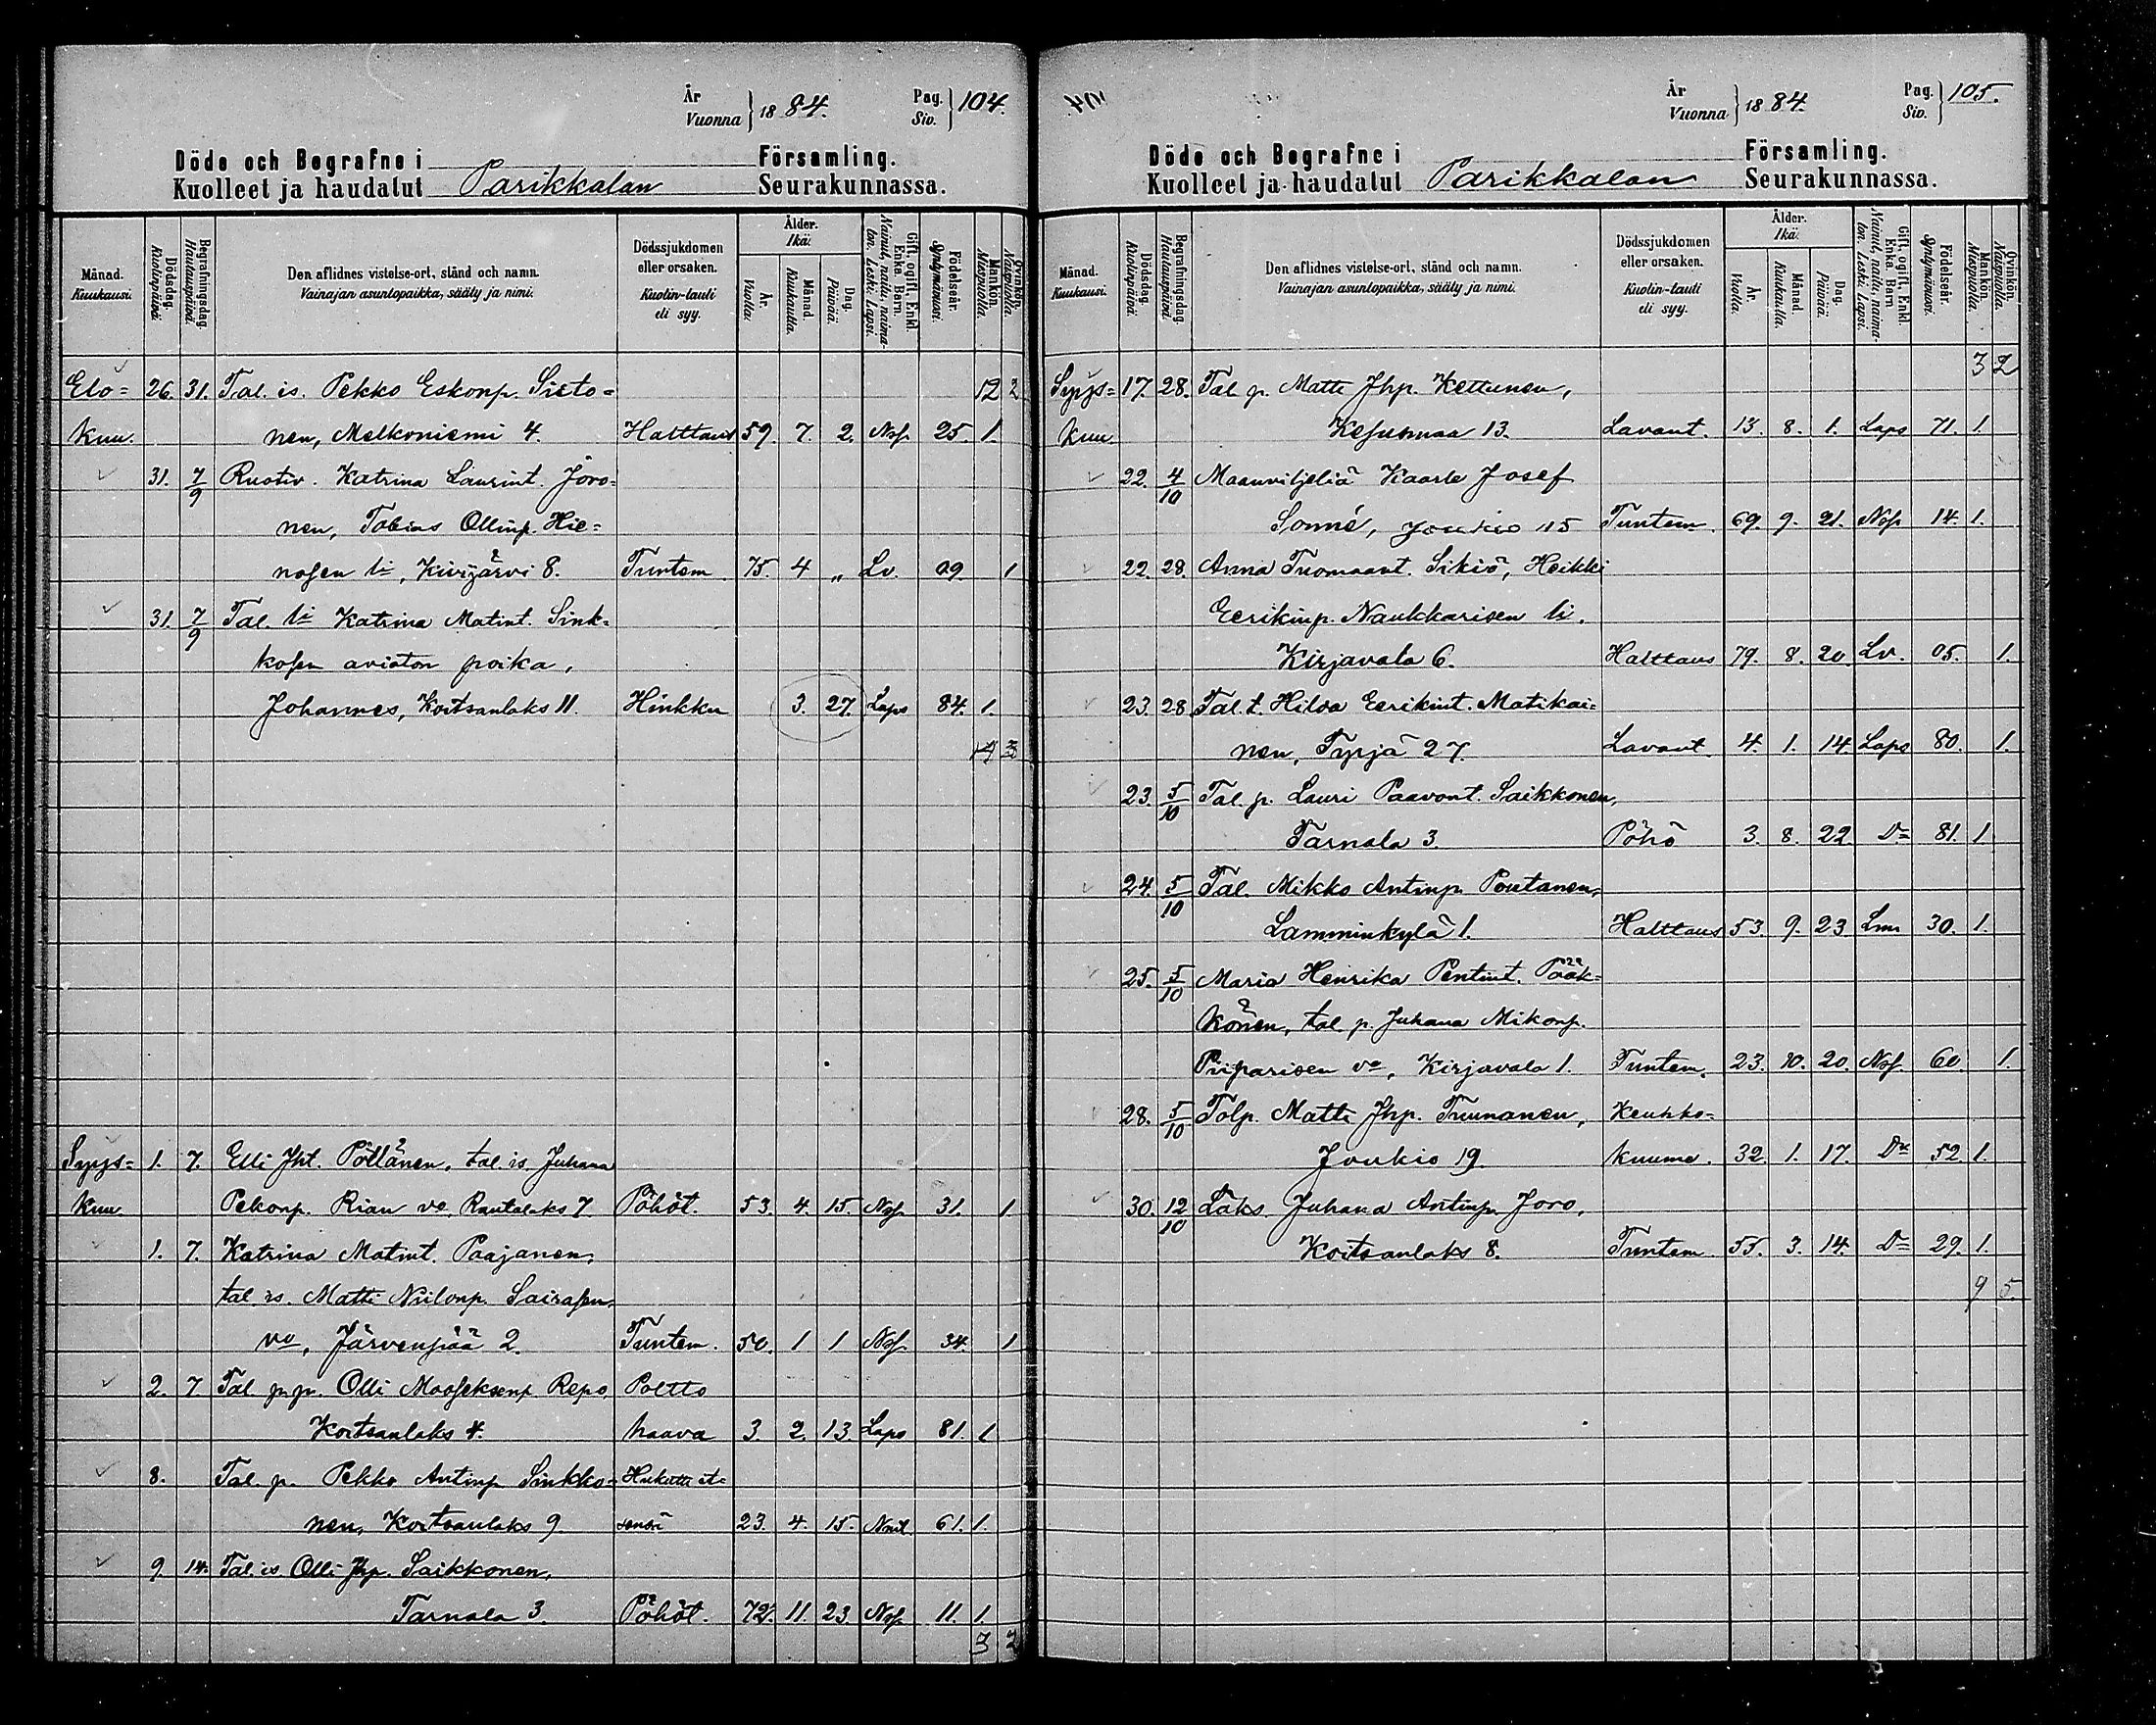 År
Vuonna } 1884. Pag.
Siv. } 104.
Döde och Begrafne i Församling.
Kuolleet ja haudatut Parikkalan Seurakunnassa.
Månad.
Kuukausi.
Dödsdag.
Kuolinpäivä.
Begrafningsdag.
Hautauspäivä.
Den aflidnes vistelse-ort, stånd och namn.
Vainajan asuntopaikka, sääty ja nimi.
Dödssjukdomen
eller orsaken.
Kuolin-tauti
eli syy.
Ålder.
Ikä.
År.
Vuotta.
Månad.
Kuukautta.
Dag.
Päivää.
Gift, ogift, Enkl.
Enka. Barn.
Nainut, naitu, naima-
ton. Leski. Lapsi.
Födelseår.
Syntymävuosi.
Mankön.
Miespuolia.
Qvinkön.
Naispuolia.
Elo= 26. 31. Tal. is. Pekko Eskonp. Sieto= 12 2
kuu. nen, Melkoniemi 4. Halttaus 59. 7. 2. Nof. 25. 1.
31. 7/9 Ruotiv. Katrina Laurint. Joro=
nen, Tobias Ollinp. Hie=
nosen li, Kivijärvi 8. Tuntem. 75. 4 „ Lv. 09 1
31. 7/9 Tal. li Katrina Matint. Sink=
kosen avioton poika,
Johannes, Koitsanlaks 11. Hinkku 3. 27. Laps 84. 1.
14 3
Syys= 1. 7. Elli Jht. Pöllänen, tal. is. Juhana
kuu. Pekonp. Rian vo, Rautalaks 7. Pöhöt. 53. 4. 15. Nof. 31. 1.
1. 7. Katrina Matint. Paajanen,
tal. is. Matti Niilonp. Sairasen
vo, Järvenpää 2. Tuntem. 50. 1 1 Nof. 34. 1
2. 7. Tal. p. p. Olli Mooseksenp. Repo, Poltto
Koitsanlaks 4. haava 3. 2. 13. Laps 81. 1
8. Tal. p. Pekko Antinp. Sinkko= Hukutti it=
nen, Koitsanlaks 9 sensä 23. 4. 15. Nmt. 61. 1.
9. 14. Tal. is. Olli Jhp. Saikkonen,
Tarnala 3. Pöhöt. 72. 11. 23. Nof. 11. 1.
3 2
104
År
Vuonna } 1884. Pag.
Siv. } 105.
Döde och Begrafne i Församling.
Kuolleet ja haudatut Parikkalan Seurakunnassa.
Månad.
Kuukausi.
Dödsdag.
Kuolinpäivä.
Begrafningsdag.
Hautauspäivä.
Den aflidnes vistelse-ort, stånd och namn.
Vainajan asuntopaikka, sääty ja nimi.
Dödssjukdomen
eller orsaken.
Kuolin-tauti
eli syy.
Ålder.
Ikä.
År.
Vuotta.
Månad.
Kuukautta.
Dag.
Päivää.
Gift, ogift, Enkl.
Enka. Barn.
Nainut, naitu, naima-
ton. Leski. Lapsi.
Födelseår.
Syntymävuosi.
Mankön.
Miespuolia.
Qvinkön.
Naispuolia.
3 2
Syys= 17. 28. Tal. p. Matti Jhp. Kettunen,
kuu. Kesusmaa 13. Lavant. 13. 8. 1. Laps 71. 1
22. 4/10 Maanviljeliä Kaarle Josef
Sonné, Joukio 15 Tuntem. 69. 9. 21. Nof. 14. 1.
22. 28. Anna Tuomaant. Sikiö, Heikki
Eerikinp. Naukkarisen li.
Kirjavala 6. Halttaus 79. 8. 20. Lv. 05. 1.
23. 28 Tal. t. Hilda Eerikint. Matikai=
nen, Tyrjä 27. Lavant. 4. 1. 14. Laps 80. 1.
23. 5/10 Tal. p. Lauri Paavont. Saikkonen,
Tarnala 3. Pöhö 3. 8. 22. Do 81. 1
24. 5/10 Tal. Mikko Antinp. Poutanen,
Lamminkylä 1. Halttaus 53. 9. 23 Lm 30. 1.
25. 5/10 Maria Henrika Pentint. Pääk=
könen, tal. p. Juhana Mikonp.
Piiparisen vo, Kirjavala 1. Tuntem. 23. 10. 20. Nof. 60. 1.
28. 5/10 Tolp. Matti Jhp. Tuunanen, Keuhko=
Joukio 19. kuume. 32. 1. 17. Do 52. 1.
30. 12/10 Läks. Juhana Antinp. Joro,
Koitsanlaks 8. Tuntem. 55. 3. 14. Do 29. 1.
9 5